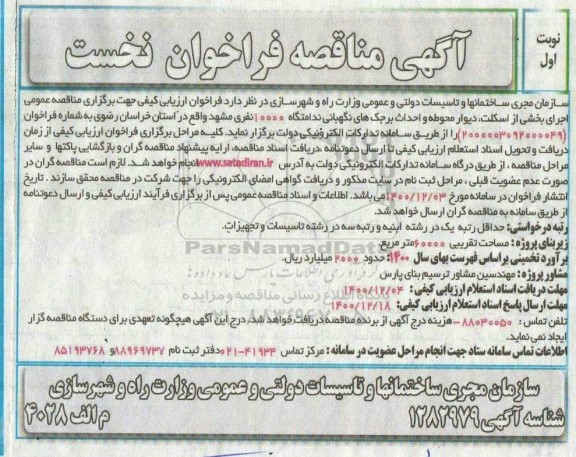 نوبت
اول
آگهی مناقصه فراخوان نخست
سازمان مجری ساختمانها و تاسیسات دولتی و عمومی وزارت راه و شهرسازی در نظر دارد فراخوان ارزیابی کیفی جهت برگزاری مناقصه عمومی
اجرای بخشی از اسکلت، دیوار محوطه و احداث برجک های نگهبانی ندامتگاه ۱۰۰۰۰ نفری مشهد واقع در استان خراسان رضوی به شماره فراخوان
(۲۰۰۰۰۰۳۰۹۲۰۰۰۰۴۹) را از طریق سامانه تدارکات الکترونیکی دولت برگزار نماید. کلیه مراحل برگزاری فراخوان ارزیابی کیفی از زمان
دریافت و تحویل اسناد استعلام ارزیابی کیفی تا ارسال دعوتنامه، دریافت اسناد مناقصه، ارایه پیشنهاد مناقصه گران و بازگشایی پاکتها و سایر
مراحل مناقصه، از طریق درگاه سامانه تدارکات الکترونیکی دولت به آدرس www.setadiran.ir انجام خواهد شد. لازم است مناقصه گران در
صورت عدم عضویت قبلی، مراحل ثبت نام در سایت مذکور و دریافت گواهی امضای الکترونیکی را جهت شرکت در مناقصه محقق سازند. تاریخ
انتشار فراخوان در سامانه مورخ ۱۴۰۰/۱۲/۰۳ می باشد. اطلاعات و اسناد مناقصه عمومی پس از برگزاری فرآیند ارزیابی کیفی و ارسال دعوتنامه
از طریق سامانه به مناقصه گران ارسال خواهد شد.
رتبه درخواستی: حداقل رتبه یک در رشته ابنیه و رتبه سه در رشته تاسیسات و تجهیزات.
زیربنای پروژه: مساحت تقریبی ۶۰۰۰۰ متر مربع
برآورد تخمینی بر اساس فهرست بهای سال ۱۴۰۰: حدود ۲۰۰۰ میلیارد ریال.
مشاور پروژه: مهندسین مشاور ترسیم بنای پارس
مهلت دریافت اسناد استعلام ارزیابی کیفی: ۱۴۰۰/۱۲/۰۴
مهلت ارسال پاسخ اسناد استعلام ارزیابی کیفی: ۱۴۰۰/۱۲/۱۸
تلفن تماس: ۸۸۰۳۰۰۵۰- هزینه درج آگهی از برنده مناقصه دریافت خواهد شد. درج این آگهی هیچگونه تعهدی برای دستگاه مناقصه گزار
ایجاد نمی نماید.
اطلاعات تماس سامانه ستاد جهت انجام مراحل عضویت در سامانه: مرکز تماس ۴۱۹۳۴-۰۲۱ دفتر ثبت نام ۸۸۹۶۹۷۳۷ و ۸۵۱۹۳۷۶۸
ParsNamadData
سازمان مجری ساختمانها و تاسیسات دولتی و عمومی وزارت راه و شهرسازی
شناسه آگهی ۱۲۸۲۹۷۹ م الف ۴۰۲۸